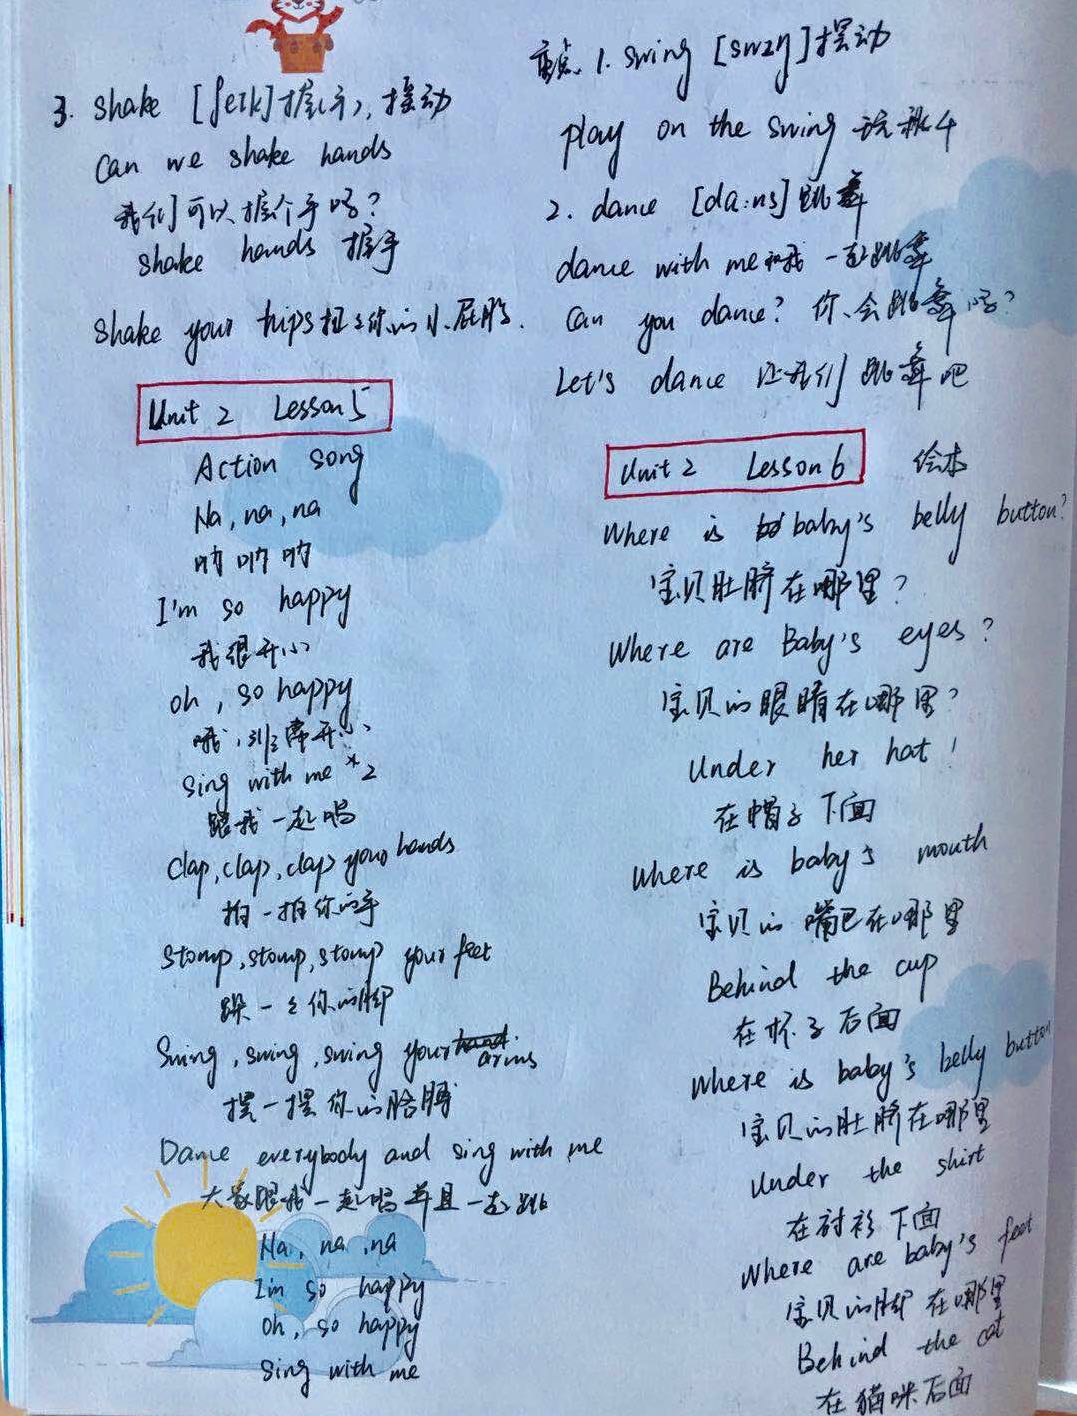 3. shake [ʃeɪk] 握(手), 摇动
Can we shake hands
我们可以握个手吗?
shake hands 握手
shake your hips 扭扭你的小屁股.
Unit 2 Lesson 5
Action song
Na, na, na
呐呐呐
I'm so happy
我很开心
oh, so happy
哦,非常开心
sing with me *2
跟我一起唱
clap, clap, clap your hands
拍一拍你的手
stomp, stomp, stomp your feet
跺一跺你的脚
Swing, swing, swing your arms
摆一摆你的胳膊
Dance everybody and sing with me
大家跟我一起唱并且一起跳
Na, na, na
I'm so happy
oh, so happy
sing with me
重点 1. swing [swɪŋ] 摆动
play on the swing 玩秋千
2. dance [da:ns] 跳舞
dance with me 和我一起跳舞
Can you dance? 你会跳舞吗?
Let's dance 让我们跳舞吧
Unit 2 Lesson 6 绘本
Where is baby's belly button?
宝贝肚脐在哪里?
Where are Baby's eyes?
宝贝的眼睛在哪里?
Under her hat!
在帽子下面
Where is baby's mouth
宝贝的嘴巴在哪里
Behind the cup
在杯子后面
Where is baby's belly button
宝贝的肚脐在哪里
Under the shirt
在衬衫下面
Where are baby's feet
宝贝的脚在哪里
Behind the cat
在猫咪后面